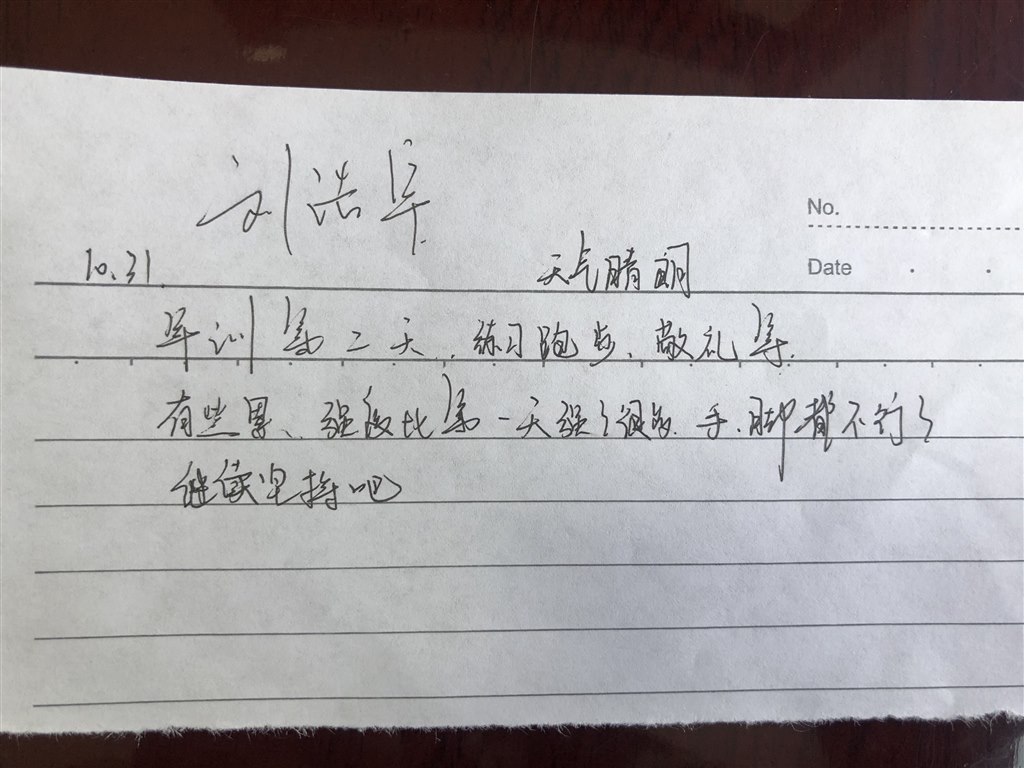 刘浩军
No.
10.31 天气晴明 Date
军训第二天，练习跑步、敬礼等.
有些累、强度比第一天强了很多.手.脚都不行了
继续坚持吧